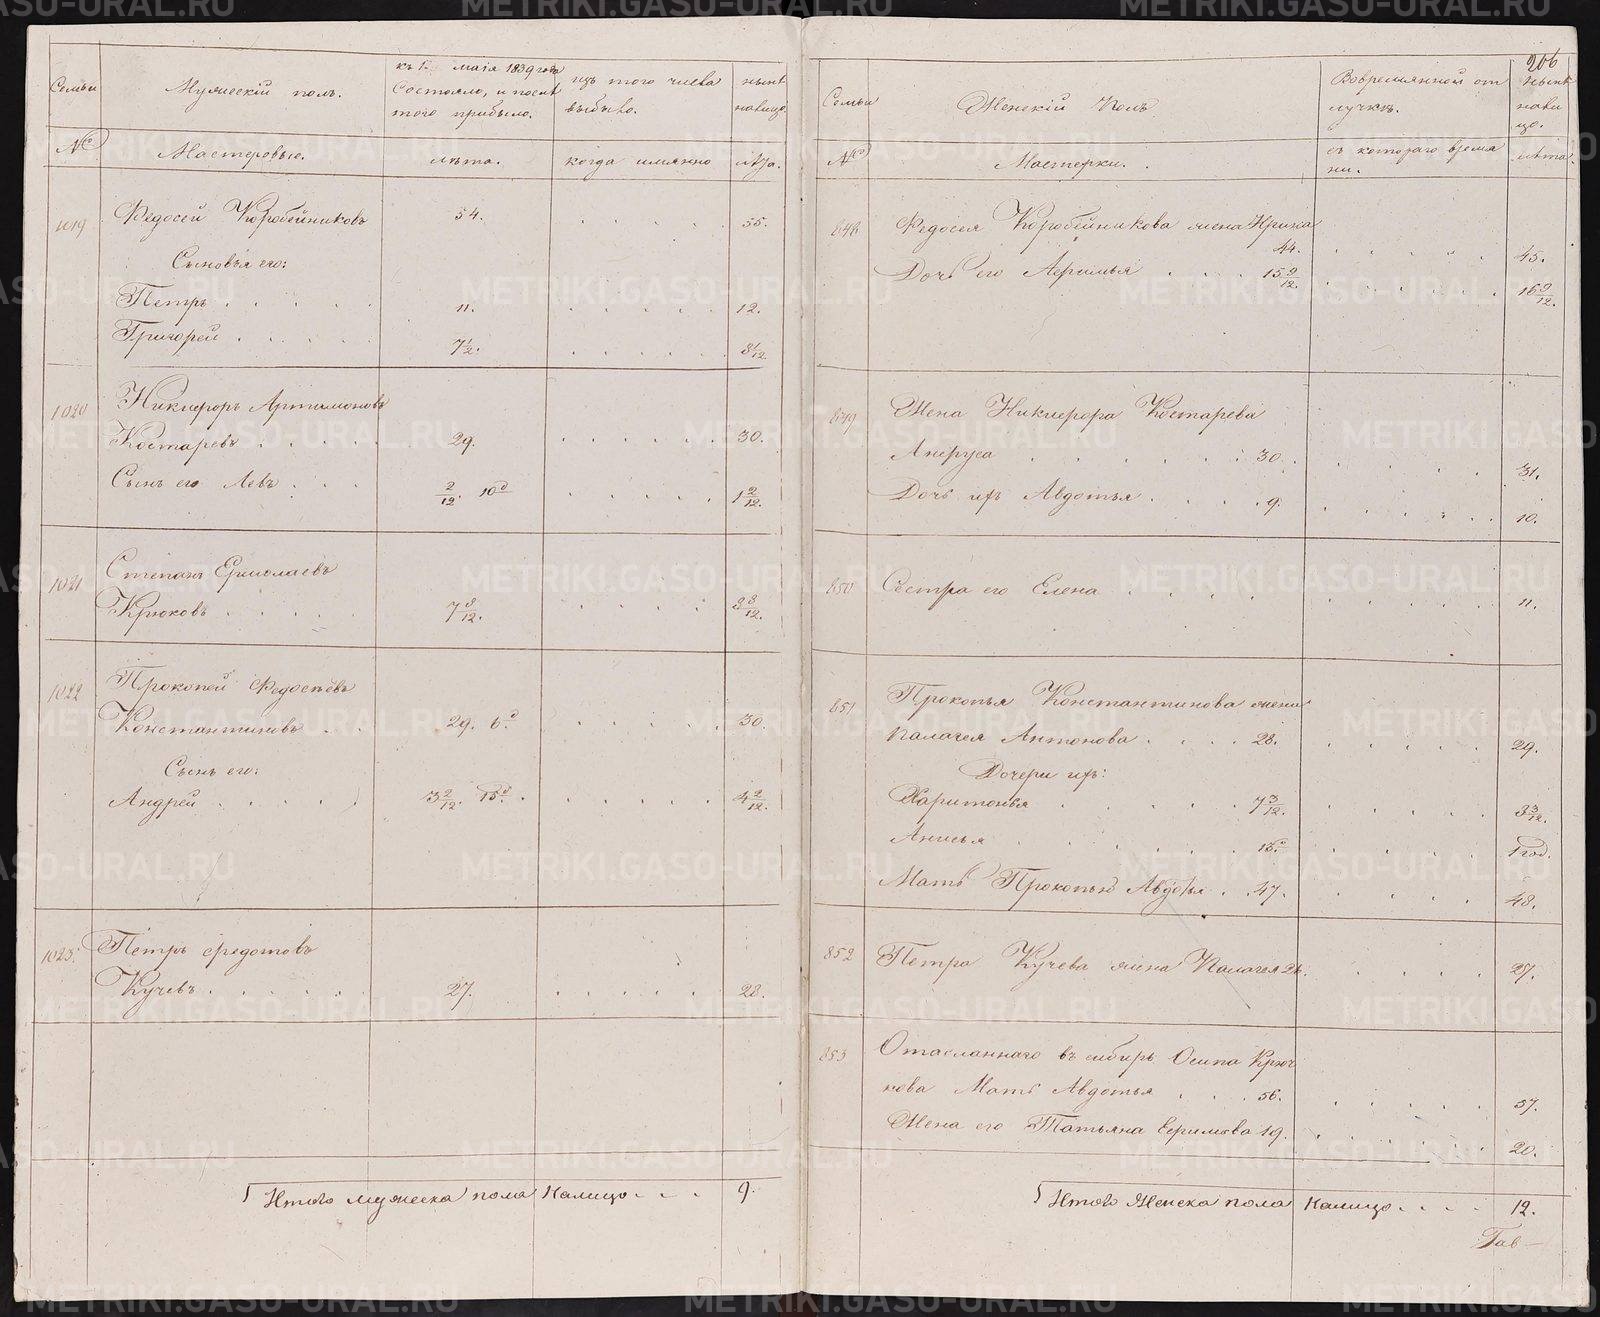 Семьи
Мужескій полъ.
къ 1 маія 1839 года
Состояло, и после
того прибыло.
изъ того числа
выбыло.
ныне
налицо.
№
Мастеровые.
лѣта.
когда имянно
лѣта.
1019
Федосей Коробейниковъ
54.
55.
Сыновья его:
Петръ
11.
12.
Григорей
7 1/2.
8 1/12.
1020
Никифоръ Артимоновъ
Костаревъ
29.
30.
Сынъ его Левъ
2/12. 10д
1 2/12.
1021
Степанъ Ермолаевъ
Крюковъ
7 8/12.
8 8/12.
1022
Прокопей Федосѣевъ
Константиновъ
29. 6.д
30.
Сынъ его:
Андрей
3 2/12. 15д.
4 2/12.
1023.
Петръ Федотовъ
Кучевъ
27.
28.
Итого мужеска пола налицо
9.
206
Семьи
Женскій Полъ
Вовремянной от
лучкѣ.
ныне
нали
цо.
№
Мастерки.
съ котораго время
ни.
лѣта.
848
Федосея Коробейникова жена Ирина
44.
45.
Дочь его
15 9/12.
16 9/12.
849
Жена Никифора Костарева
Анфуса
30.
31.
Дочь ихъ Авдотья
9.
10.
850
Сестра его Елена
11.
851
Прокопья Константинова жена
Палагея Антонова
28.
29.
Дочери ихъ:
Харитонья
7 3/12.
8 3/12.
Анисья
1 год.
Мать Прокопья Авдотья
47.
48.
852
Петра Кучева жена Палагея 26.
27.
853
Отосланнаго въ сибирь Осипа Крюч
кова Мать Авдотья
56.
57.
Жена его Татьяна Ефимова 19.
20.
Итого Женска пола налицо
12.
Гав
METRIKI.GASO-URAL.RU